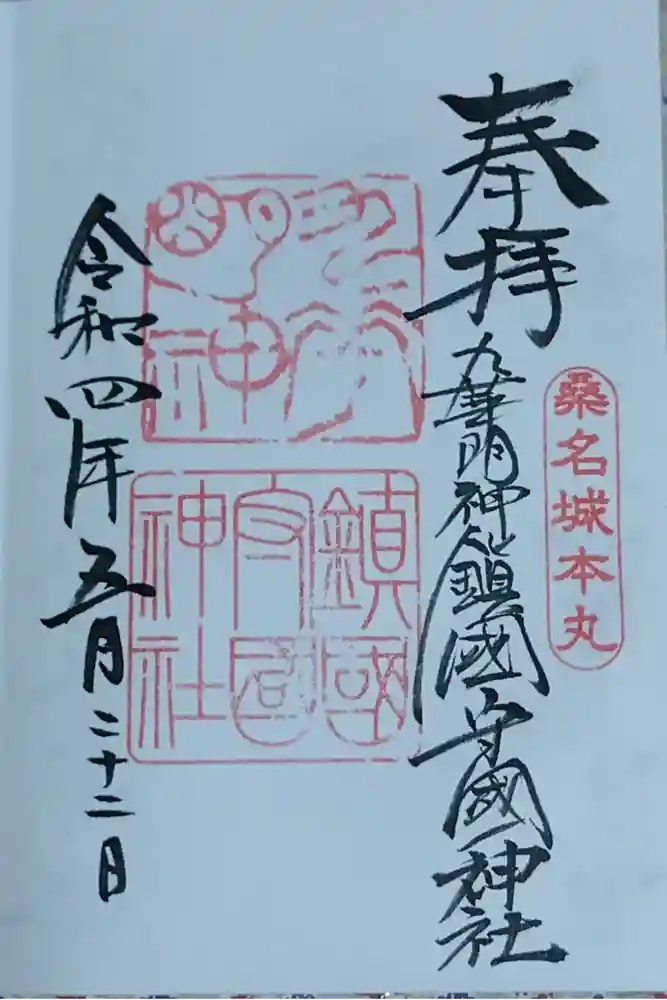 桑名城本丸
奉拝
九華明神鎮國守國神社
鎮國
守國
神社
令和四年五月二十二日